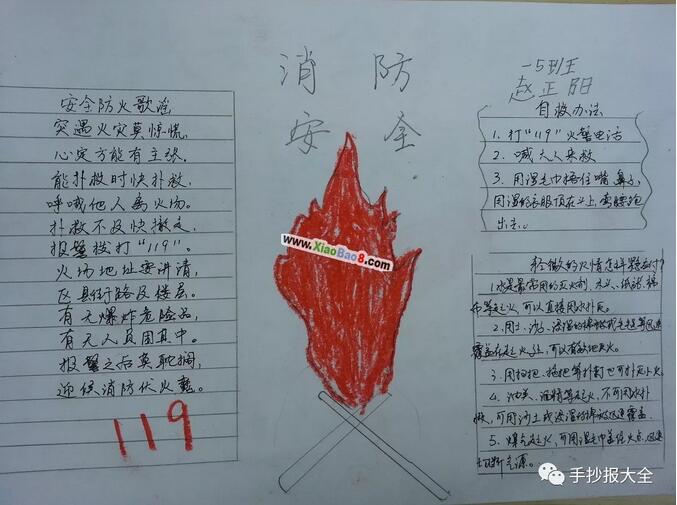 消防
安全
一5班
赵正阳
安全防火歌谣
突遇火灾莫惊慌,
心定方能有主张.
能扑救时快扑救,
呼哦他人离火场。
扑救不及快撤走,
报警拨打“119”。
火场地址要讲清,
区县街路及楼层。
有无爆炸危险品,
有无人员困其中。
报警之后莫耽搁,
迎候消防伏火魔。
119
自救办法
1. 打“119”火警电话
2. 喊大人来救
3. 用湿毛巾捂住嘴鼻子,
用湿的衣服顶在头上,弯腰跑
出去。
轻微的火情怎样应付?
1.水是最常用的灭火剂,木头、纸张、棉
布等起火,可以直接用水扑灭。
2.用土、沙子、浸湿的棉被或毛毯等迅速
覆盖在起火处,可以有效地灭火。
3.用扫把、拖把等扑打也可扑灭小火
4.油类、酒精等起火,不可用水扑
救,可用沙土或浸湿的棉被迅速覆盖.
5.煤气起火,可用湿毛巾盖住火点,迅速
切断气源。
www.XiaoBao8.com
手抄报大全